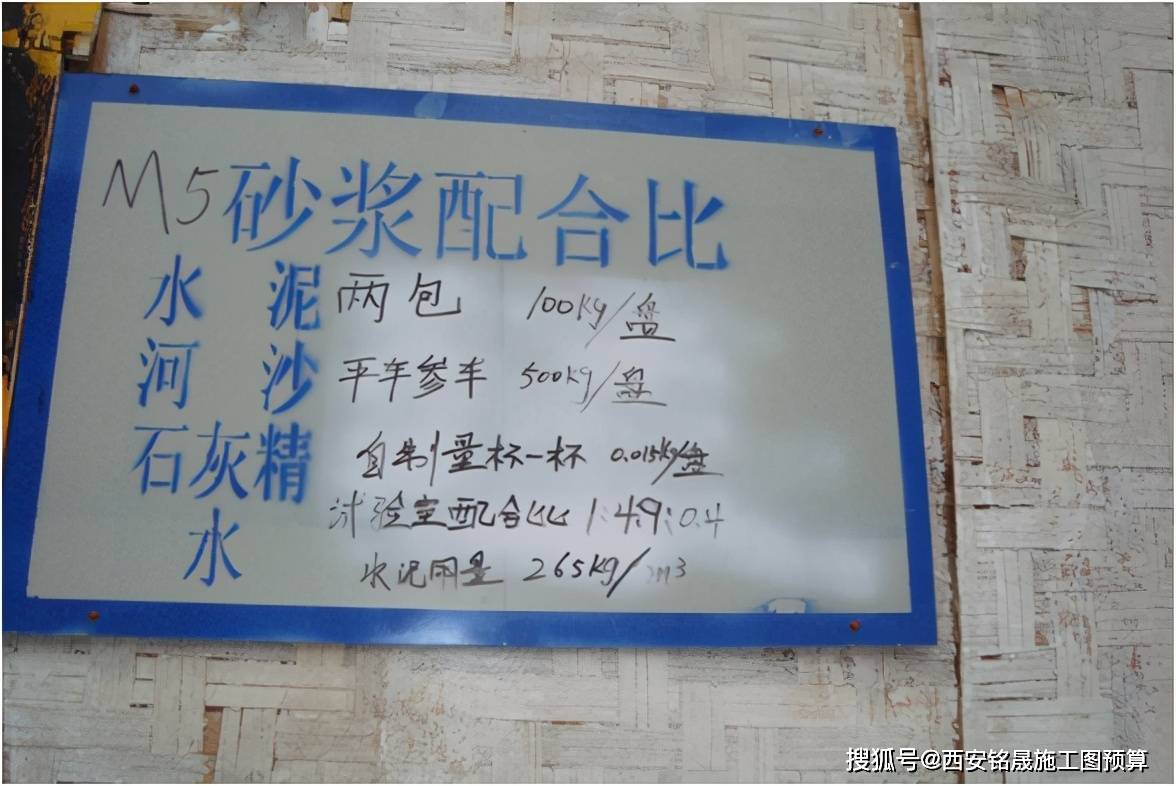 M5砂浆配合比
水 泥 两包 100kg/盘
河 沙 平车叁车 500kg/盘
石灰精 自制量杯一杯 0.015kg/盘
试验室配合比 1:4.9:0.4
水 水泥用量 265kg/m3
搜狐号@西安铭晟施工图预算